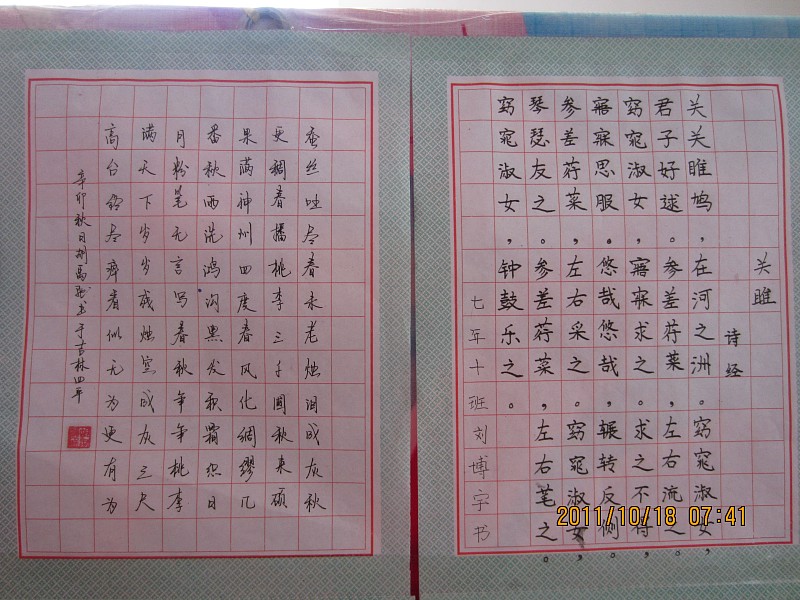 关雎
诗经
关关雎鸠，在河之洲。窈窕淑女，
君子好逑。参差荇菜，左右流之，
窈窕淑女，寤寐求之。求之不得，
寤寐思服。悠哉悠哉，辗转反侧。
参差荇菜，左右采之，窈窕淑女，
琴瑟友之。参差荇菜，左右芼之。
窈窕淑女，钟鼓乐之。
七年十班刘博宇书
蚕丝吐尽春未老烛泪成灰秋
更稠春播桃李三千圃秋来硕
果满神州四度春风化绸缪几
番秋雨洗鸿沟黑发秋霜织日
月粉笔无言写春秋年年桃李
满天下岁岁残烛空成灰三尺
高台尽瘁看似无为更有为
辛卯秋日书于吉林四平
2011/10/18 07:41